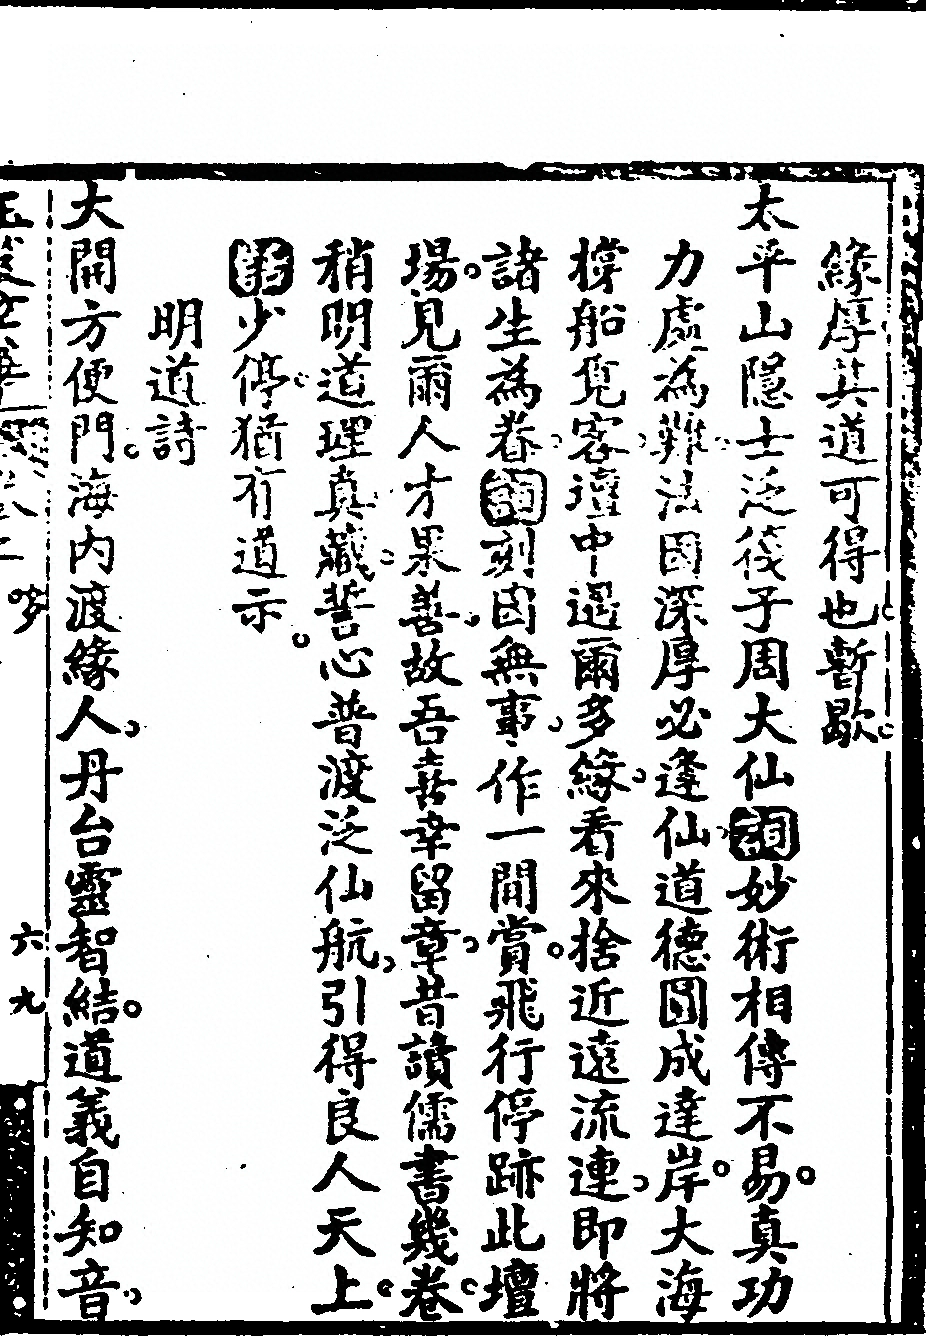 緣厚其道可得也暫歇
太平山隱士泛筏子周大仙詞妙術相傳不易真功
力處為難法固深厚必逢仙道德圓成達岸大海
撐船覓客壇中遇爾多緣看來捨近遠流連即將
諸生為眷詞刻因無事作一開賞飛行停跡此壇
場見爾人才果善故吾喜幸留章昔讀儒書幾卷
稍明道理真藏誓心普渡泛仙航引得良人天上
少停猶有道示
明道詩
大開方便門海內渡緣人丹台靈智結道義自知音
六九